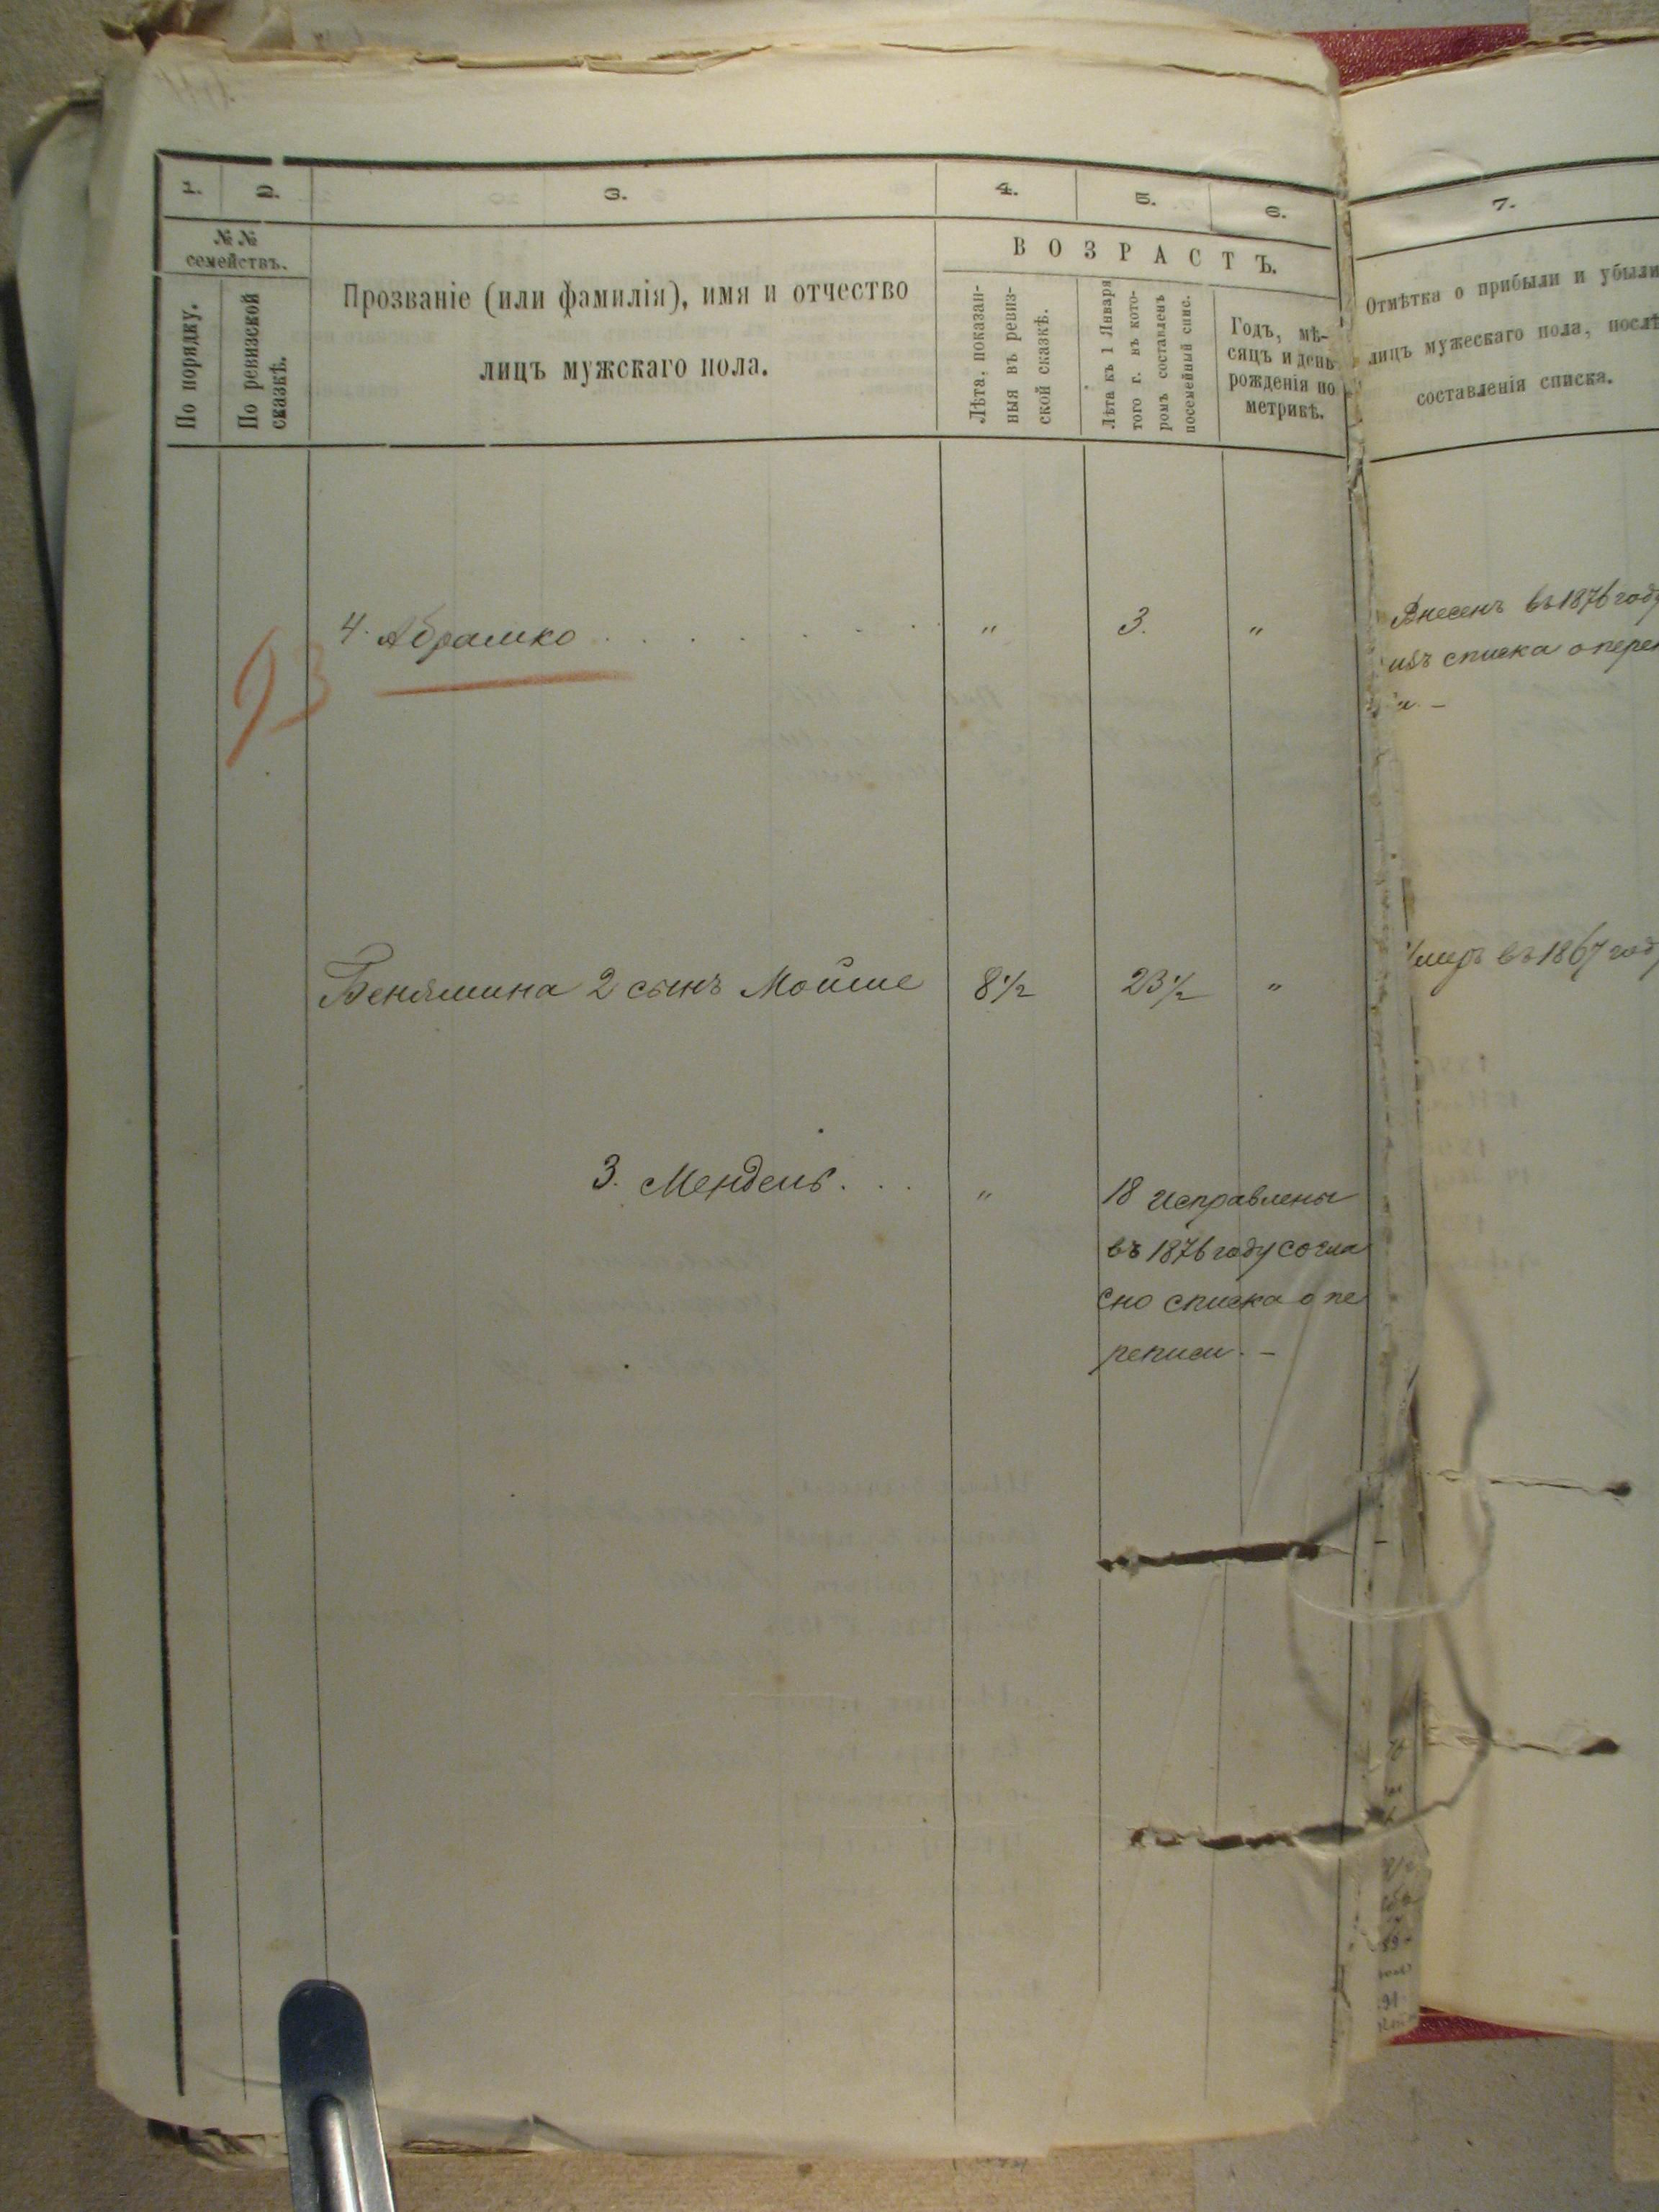 1. 2. 3. 4. 5. 6. 7.
№ №
семействъ.
По порядку.
По ревизской
сказкѣ.
Прозваніе (или фамилія), имя и отчество
лицъ мужскаго пола.
ВОЗРАСТЪ.
Лѣта, показан-
ныя въ ревиз-
ской сказкѣ.
Лѣта къ 1 Января
того г. въ кото-
ромъ составленъ
посемейный спис.
Годъ, мѣ-
сяцъ и день
рожденія по
метрикѣ.
Отмѣтка о прибыли и убыли
лицъ мужескаго пола, послѣ
составленія списка.
93
4. Абрамко . . . . . . . " 3. "
Внесенъ въ 1876 году
изъ списка о переп
Бенямина 2 сынъ Мойше 8½ 23½ "
Умеръ въ 1867 году
3. Мендель . . . " 18 исправлены
въ 1876 году согла
сно списка о пе
реписи. –